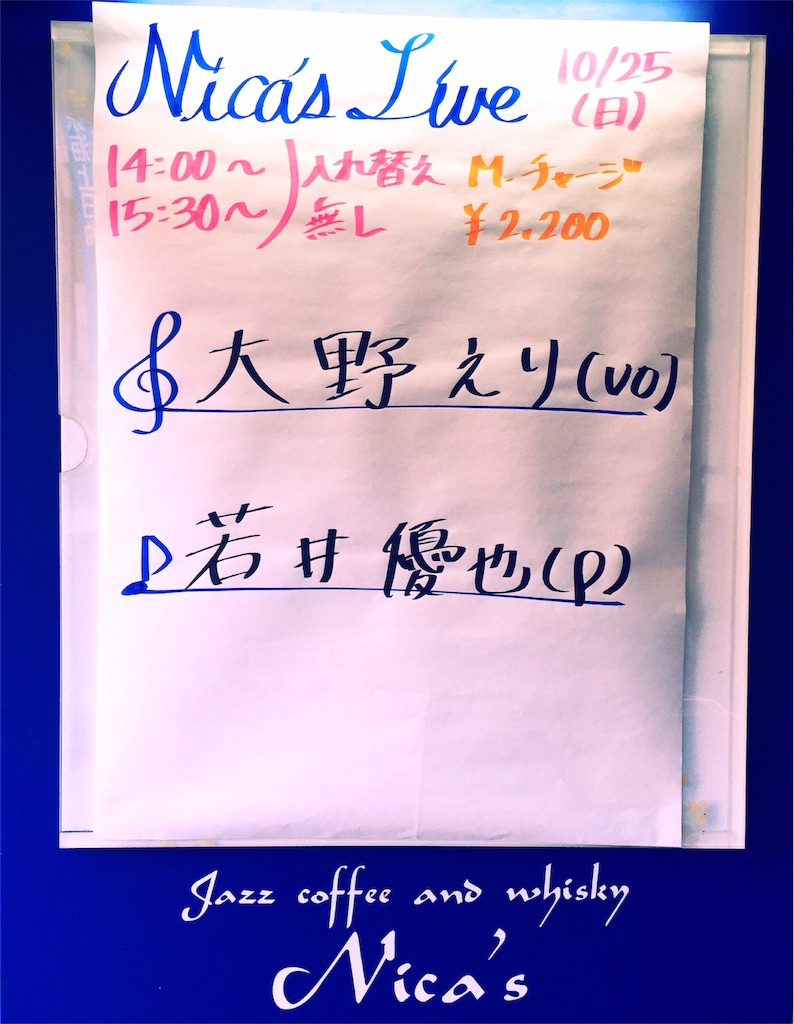 Nica's Live 10/25
(日)
14:00〜 入れ替え M.チャージ
15:30〜 無し ¥2,200
大野えり(vo)
若井優也(p)
Jazz coffee and whisky
Nica's